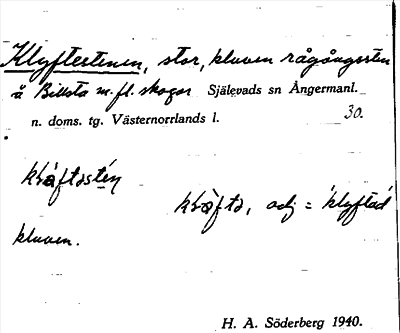 Klyftestenen, stor, kluven rågångssten
å Billsta m.fl. skogar Själevads sn Ångermanl.
n. doms. tg. Västernorrlands l. 30.
kluven.
adj = klyftad
H. A. Söderberg 1940.